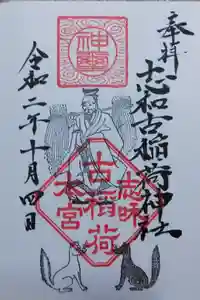 奉拝
志和古稲荷神社
令和二年十月四日
志和
古稲荷
本宮